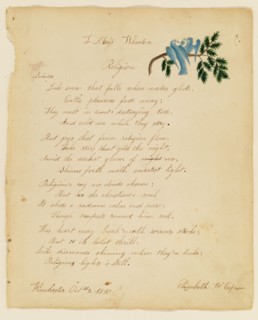 To Mary Wharton
Religion
Like snow that falls where waters glide,
Earth's pleasures fade away;
They melt in time's destroying tide,
And cold are while they stay.
But joys that from religion flow,
Like stars that gild the night,
Amid the darkest gloom of woe,
Shine forth with sweetest light.
Religion's ray no clouds obscure;
But o'er the christian's soul
It sheds a radiance calm and pure,
Though tempests round him roll.
His heart may break 'neath sorrow's stroke;
But to its latest thrill,
Like diamonds shining when they're broke,
Religion lights it still.
Winchester Oct
Elizabeth W